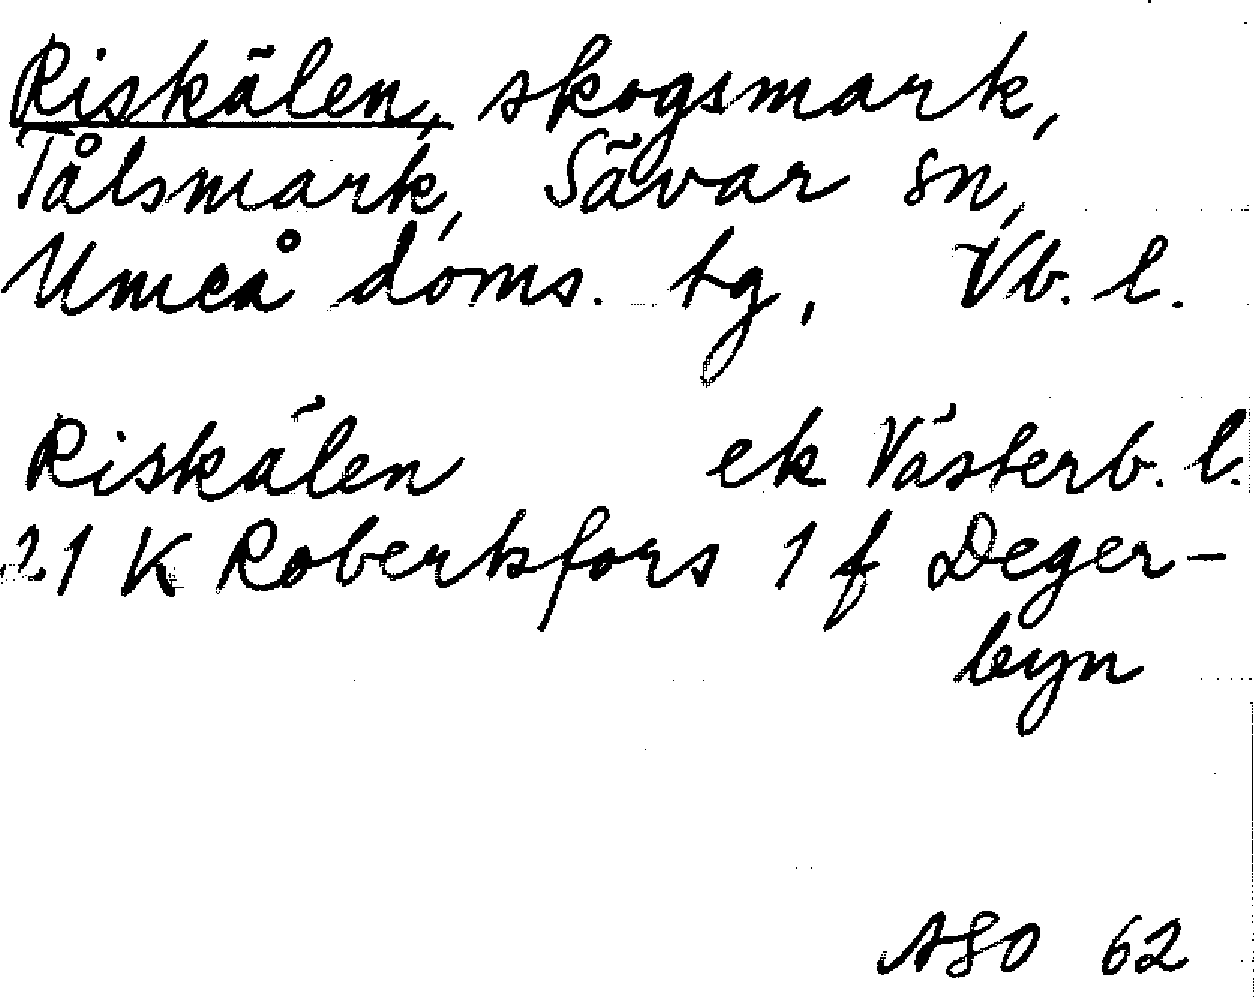 Riskälen, skogsmark,
Tålsmark, Sävar sn,
Umeå doms. tg, Vb. l.
Riskälen ek Västerb. l.
21 K Robertsfors 1 f Deger-
byn
ASO 62